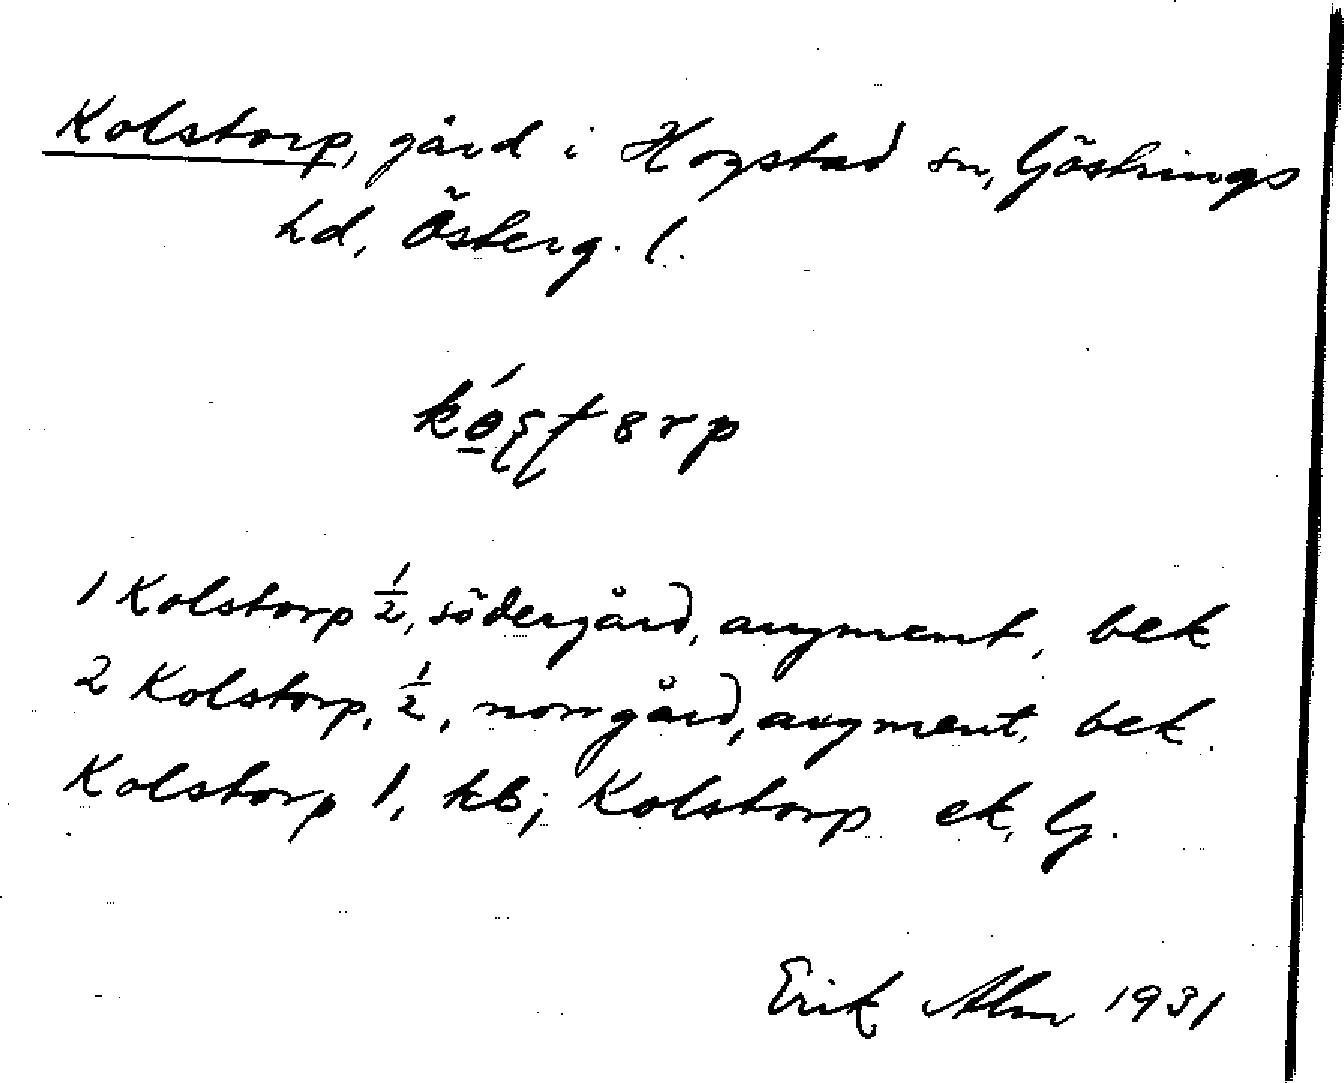 Kolstorp, gård i Hogstad sn, Göstrings
hd, Österg. l.
1 Kolstorp 1/2, södergård, augment, bek
2 Kolstorp, 1/2, norrgård, augment, bek.
Kolstorp 1, kb; Kolstorp ek, G.
Erik Alm 1931